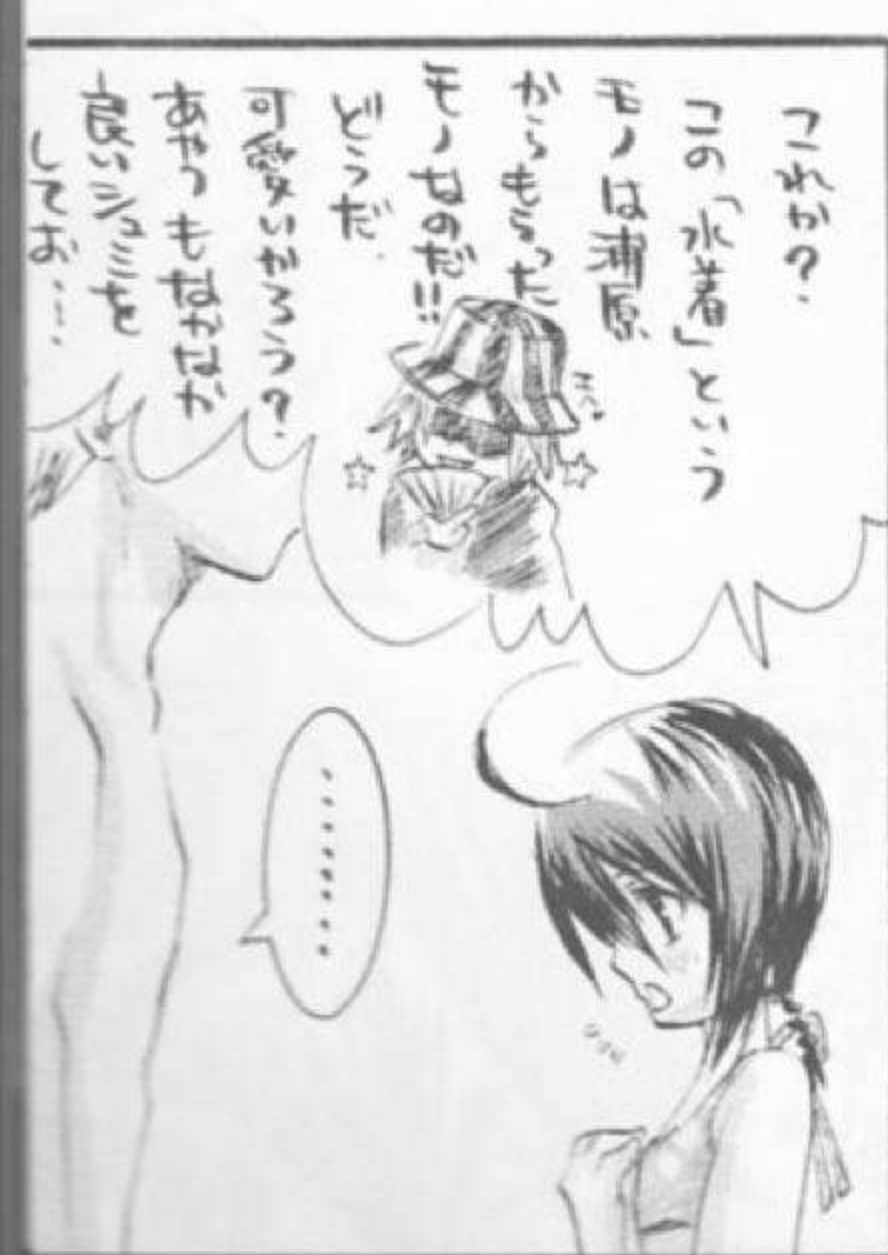 これか?
この「水着」という
モノは浦原
からもらった
モノなのだ!!
どうだ.
可愛いかろう?
あやつもなかなか
良いシュミを
してお…
エヘ
………